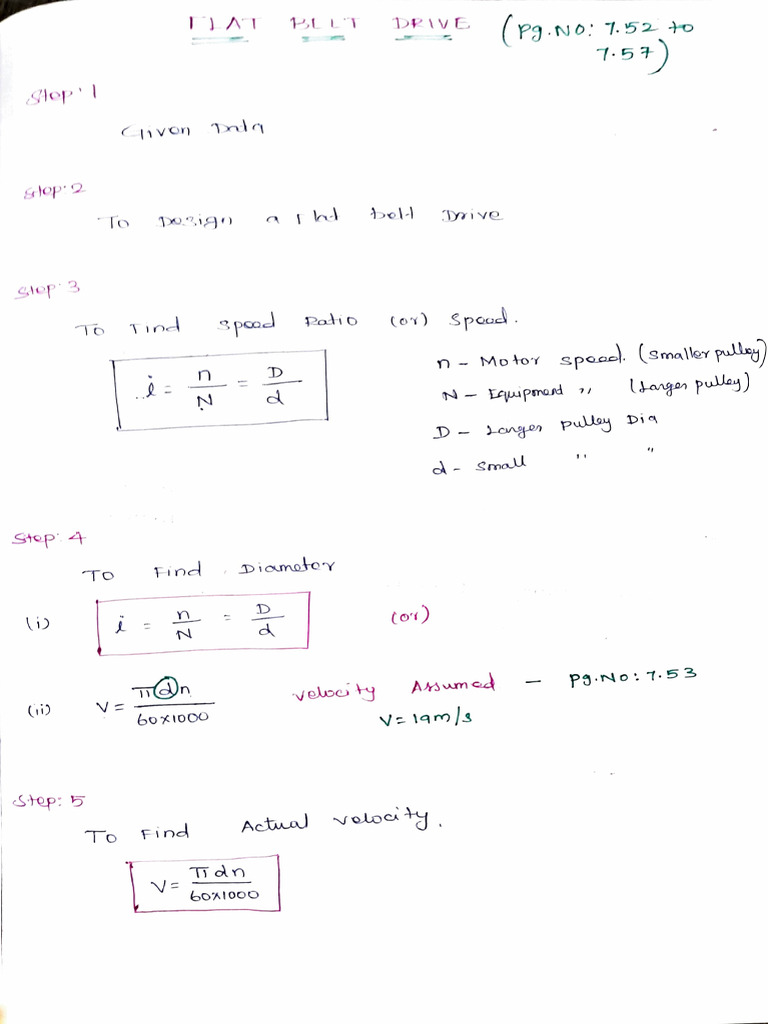 FLAT BELT DRIVE (Pg.NO: 7.52 to
7.57)
Step: 1
Given Data
Step: 2
To Design a flat belt Drive
Step: 3
To Find Speed Ratio (or) Speed.
i = n/N = D/d
n - Motor speed. (Smaller pulley)
N - Equipment ,, (Larger pulley)
D - Larger Pulley Dia
d - Small ,, ,,
Step: 4
To Find Diameter
(i) i = n/N = D/d (or)
(ii) V = πdn/60x1000 Velocity Assumed - Pg.No: 7.53
V = 19m/s
Step: 5
To Find Actual Velocity.
V = πdn/60x1000